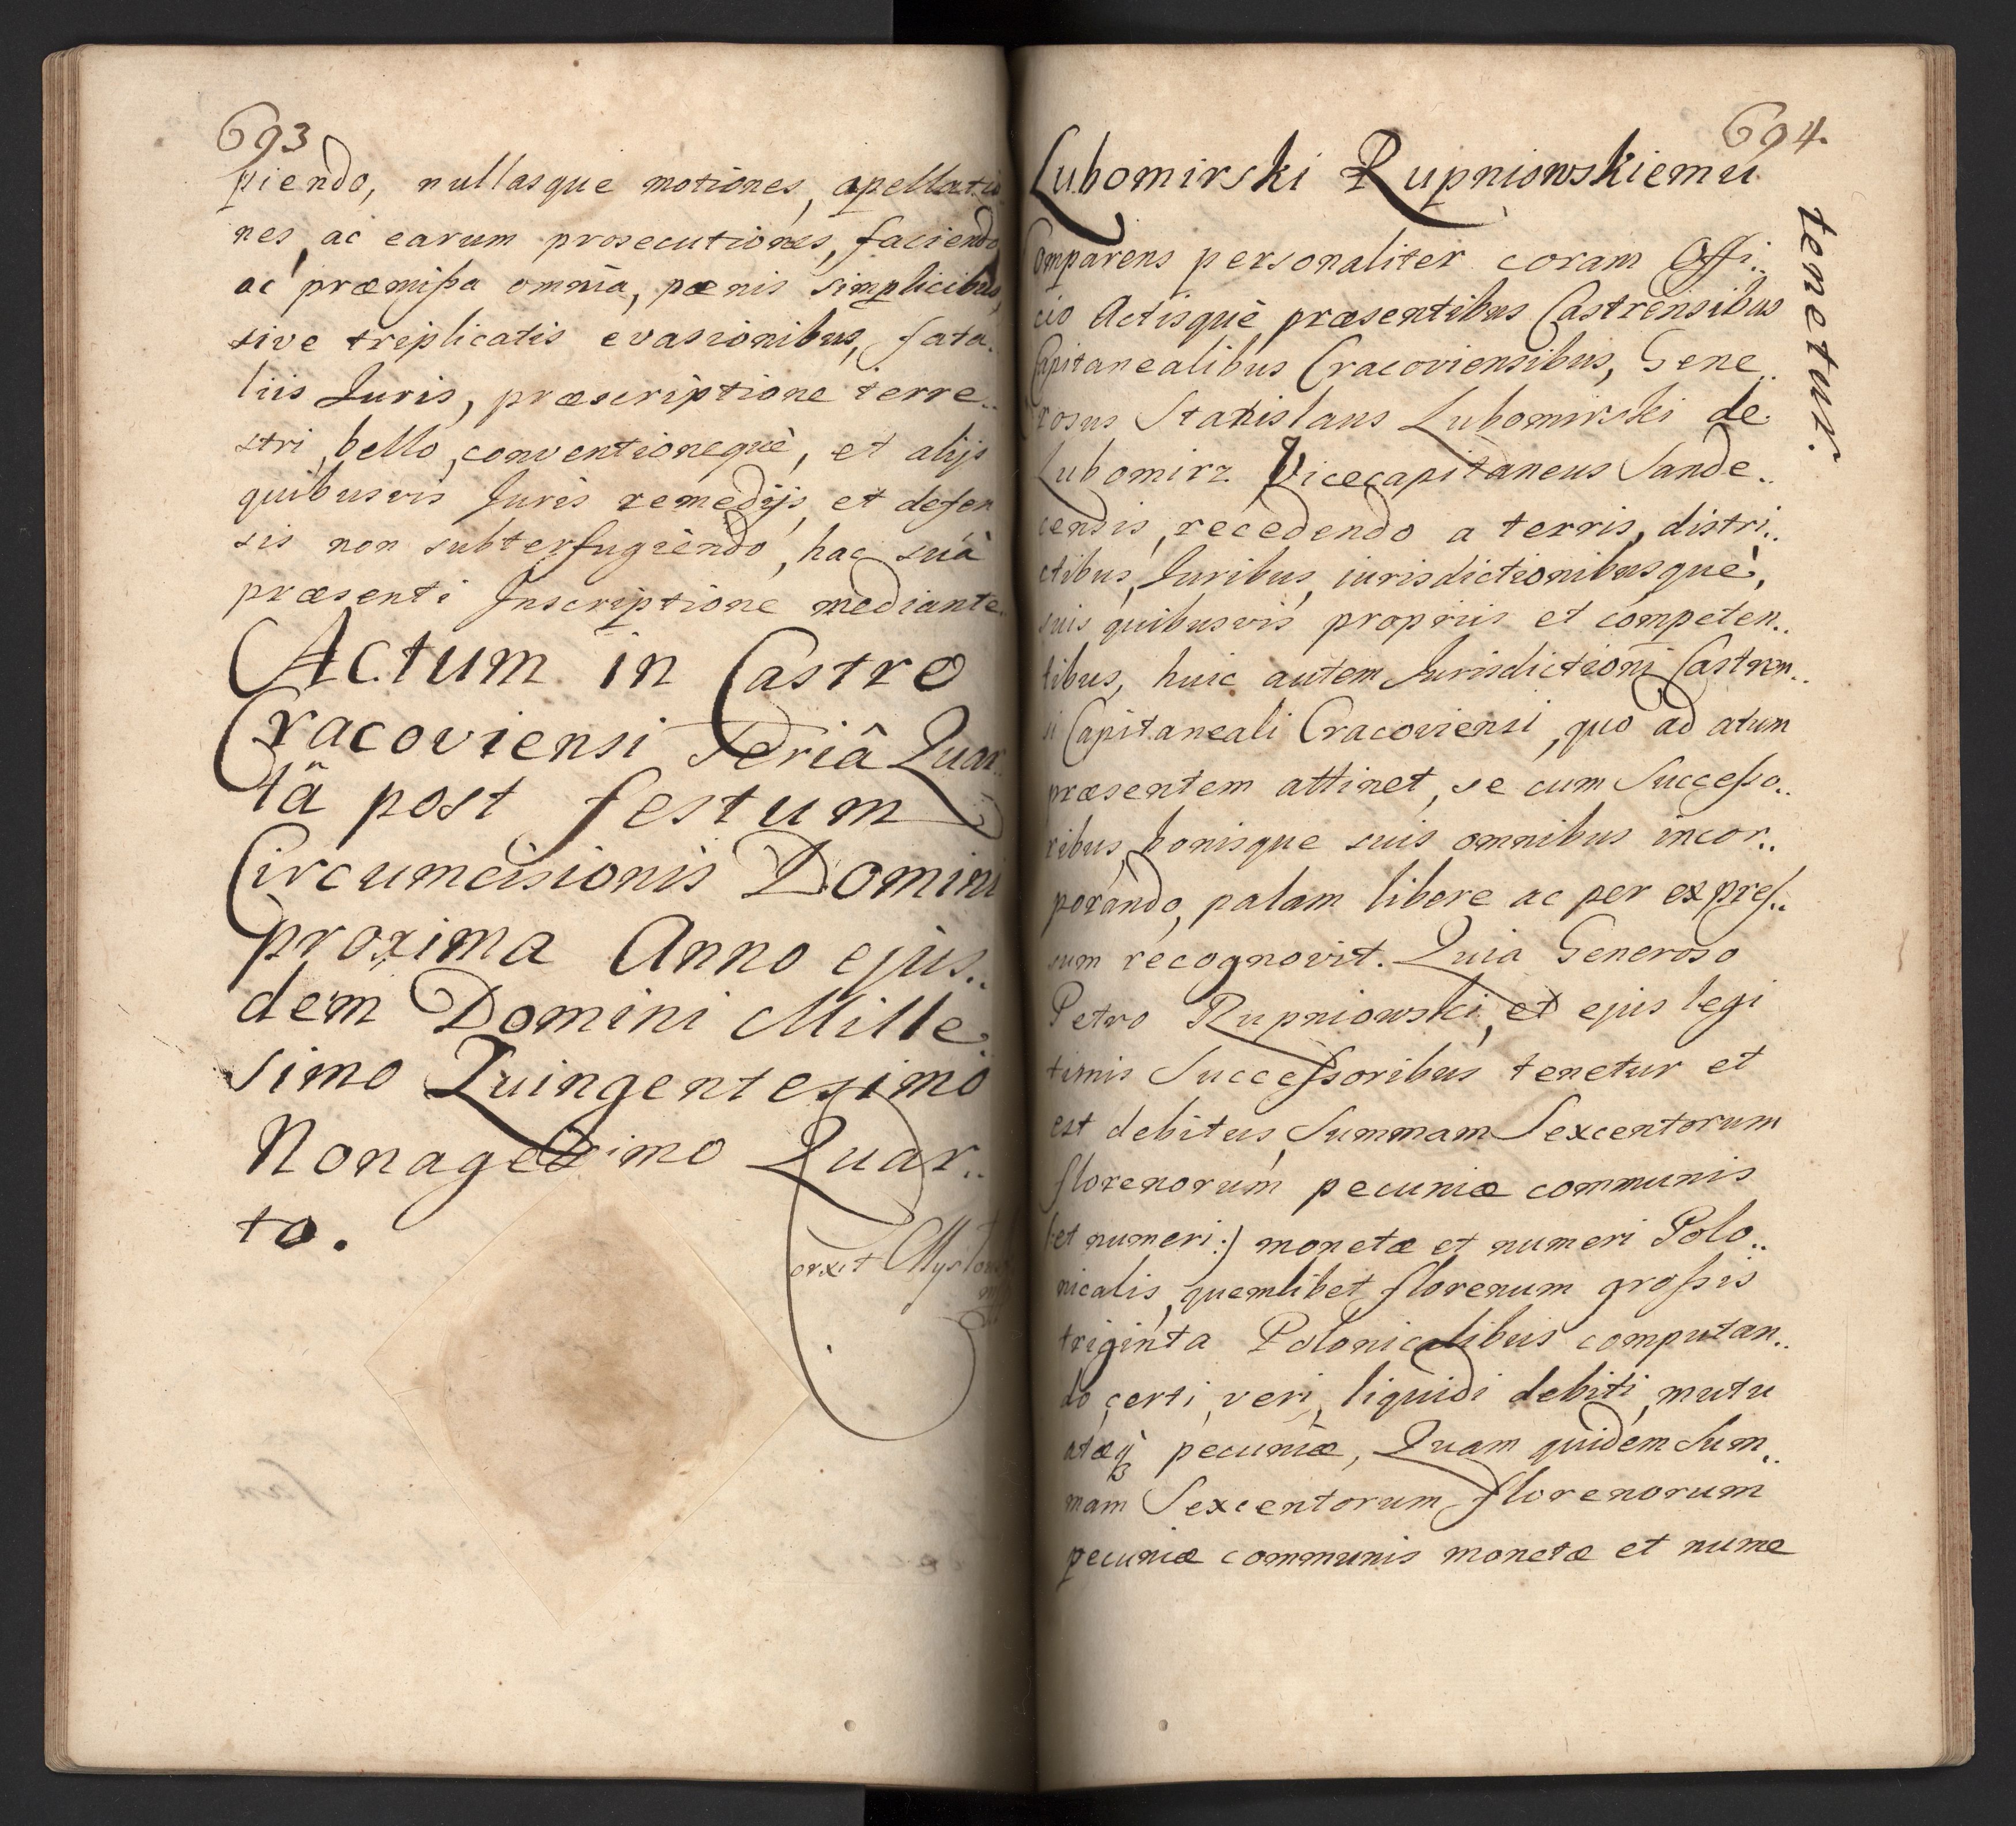 693
piendo, nullasque motiones, apellatio
nes, ac earum prosecutiones, faciendo
ac præmißa omnia, pœnis simplicibus,
sive triplicatis evasionibus, fata..
liis Juris, præscriptione terre..
stri, bello, conventionequè, et alijs
quibusvis Juris remedijs, et defen
sis non subterfugièndo, hac suâ
præsenti Inscriptione mediante.
Actum in Castro
Cracoviensi Feriâ Quar..
tâ post festum
Circumcisionis Domini
proxima Anno ejus..
dem Domini Mille.
simo Quingentesimo
Nonagesimo Quar..
to.
694.
Lubomirski Rupniowskiemu
tenetur.
Comparens personaliter coram Offi..
cio Actisquè præsentibus Castrensibus
Capitanealibus Cracoviensibus, Gene..
rosus Stanislaus Lubomirski de
Lubomirz. Vicecapitaneus Sande..
censis, recedendo a terris, distri..
ctibus, Juribus, iurisdictionibusquè,
suis quibusvis propriis et competen..
tibus, huic autem Jurisdictioni Castren..
si Capitaneali Cracoviensi, quo ad atum
præsentem attinet, se cum Successo..
ribus, bonisque suis omnibus incor..
porando, palam libere ac per expres..
sum recognovit. Quia Generoso
Petro Rupniowski, et ejus legi
timis Successoribus tenetur et
est debitus, Summam Sexcentorum
florenorum pecuniæ communis
(:et numeri:) monetæ et numeri Polo..
nicalis, quemlibet florenum großis
triginta Polonicalibus computan..
do, certi, veri, liquidi debiti, mutu
atæq3 pecuniæ, Quam quidem Sum..
mam Sexcentorum florenorum
pecuniæ communis monetæ et nume